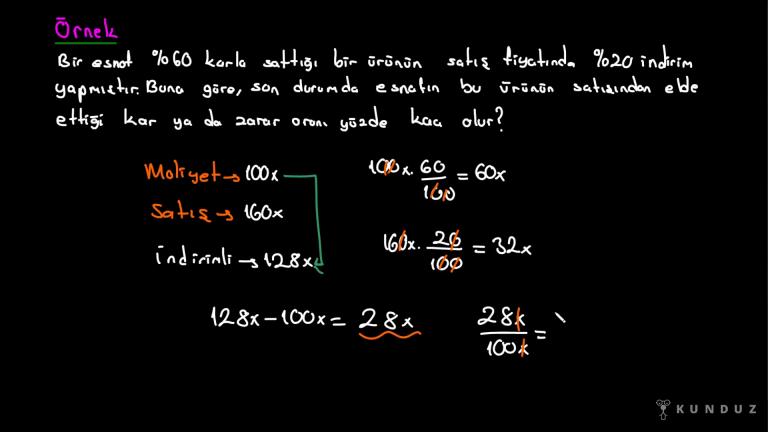 Örnek
Bir esnaf %60 karla sattığı bir ürünün satış fiyatında %20 indirim
yapmıştır. Buna göre, son durumda esnafın bu ürünün satışından elde
ettiği kar ya da zarar oranı yüzde kaç olur?
Maliyet → 100x
100x · 60/100 = 60x
Satış → 160x
160x · 20/100 = 32x
İndirimli → 128x
128x - 100x = 28x
28x/100x =
KUNDUZ